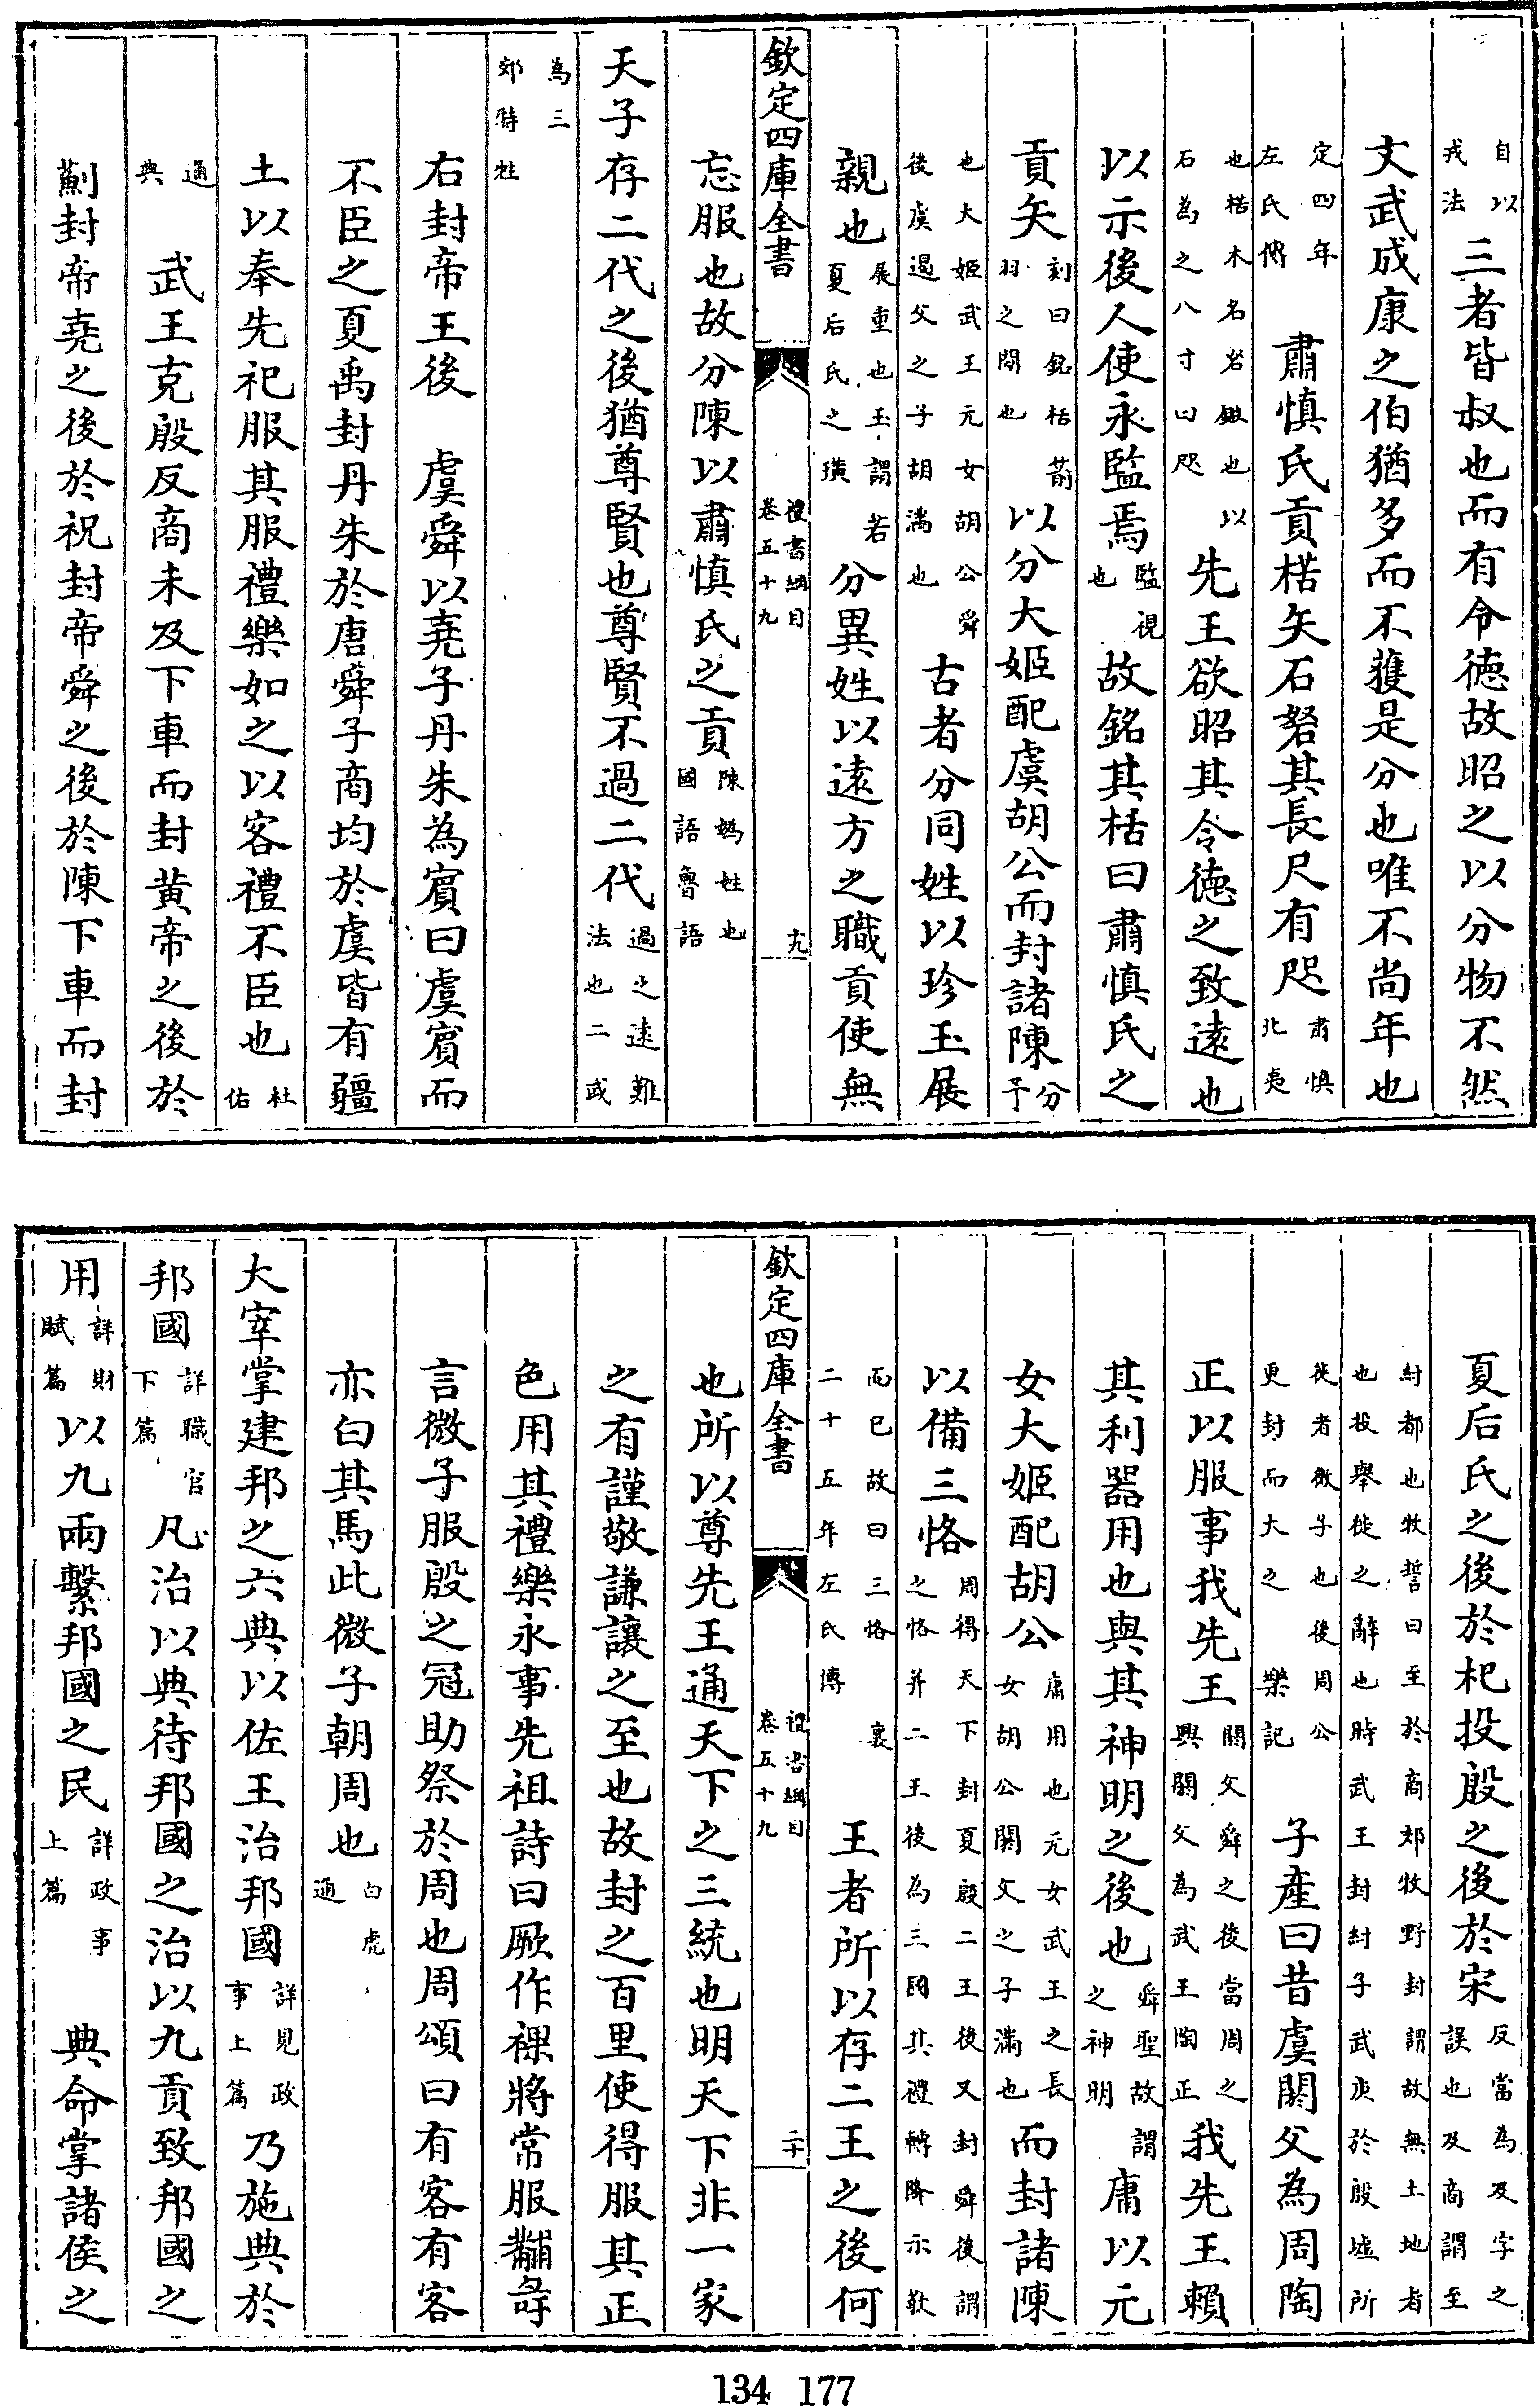 自以戎法三者皆叔也而有令徳故昭之以分物不然
文武成康之伯猶多而不獲是分也唯不尚年也
定四年左氏傳　肅慎氏貢楛矢石砮其長尺有咫肅慎北夷
也楛木名砮鏃也以石為之八寸曰咫先王欲昭其令徳之致逺也
以示後人使永監焉監視也故銘其栝曰肅慎氏之
貢矢刻曰銘栝箭羽之間也以分大姬配虞胡公而封諸陳分予
也大姬武王元女胡公舜後虞遏父之子胡滿也古者分同姓以珍玉展
親也展重也玉謂若夏后氏之璜分異姓以逺方之職貢使無
欽定四庫全書　禮書綱目卷五十九　十九
忘服也故分陳以肅慎氏之貢陳媯姓也國語魯語
天子存二代之後猶尊賢也尊賢不過二代過之逺難法也二或
為三郊特牲
右封帝王後　虞舜以堯子丹朱為賓曰虞賓而
不臣之夏禹封丹朱於唐舜子商均於虞皆有疆
土以奉先祀服其服禮樂如之以客禮不臣也杜佑
通典　武王克殷反商未及下車而封黄帝之後於
薊封帝堯之後於祝封帝舜之後於陳下車而封
夏后氏之後於杞投殷之後於宋反當為及字之誤也及商謂至
紂都也牧誓曰至於商郊牧野封謂故無土地者也投舉徙之辭也時武王封紂子武庚於殷墟所
徙者微子也後周公更封而大之樂記　子産曰昔虞閼父為周陶
正以服事我先王閼父舜之後當周之興閼父為武王陶正我先王賴
其利器用也與其神明之後也舜聖故謂之神明庸以元
女大姬配胡公庸用也元女武王之長女胡公閼父之子滿也而封諸陳
以備三恪周得天下封夏殷二王後又封舜後謂之恪并二王後為三國其禮轉降示敬
而已故曰三恪襄二十五年左氏傳　王者所以存二王之後何
欽定四庫全書　禮書綱目卷五十九　二十
也所以尊先王通天下之三統也明天下非一家
之有謹敬謙讓之至也故封之百里使得服其正
色用其禮樂永事先祖詩曰厥作祼將常服黼冔
言微子服殷之冠助祭於周也周頌曰有客有客
亦白其馬此微子朝周也白虎通
大宰掌建邦之六典以佐王治邦國詳見政事上篇乃施典於
邦國詳職官下篇凡治以典待邦國之治以九貢致邦國之
用詳財賦篇以九兩繫邦國之民詳政事上篇　典命掌諸侯之
134 177